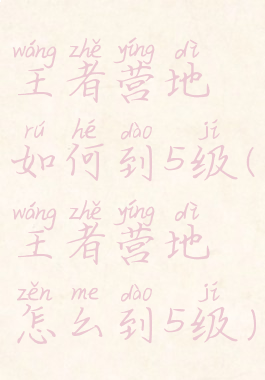 wáng zhě yíng dì
王者营地
rú hé dào jí
如何到5级(
wáng zhě yíng dì
王者营地
zěn me dào jí
怎么到5级)